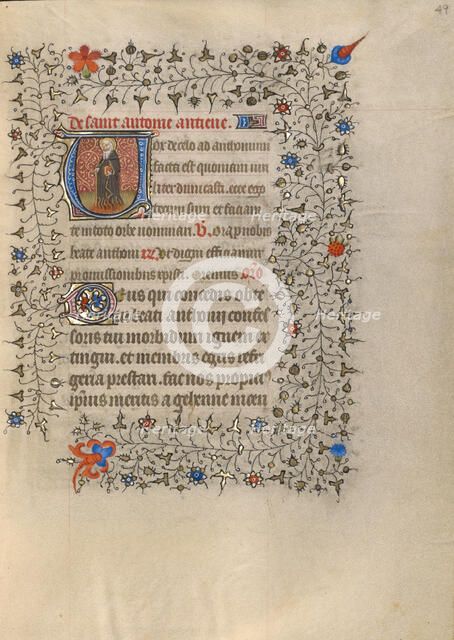 49
De saint antoine antiene.
Vox de celo ad anthonium
facta est quoniam vi
liter dimicasti. ecce ego
tecum sum et faciam
te in toto orbe nominari. V. Ora pro nobis
beate anthoni R Ut digni efficiamur
promissionibus xpisti. Oremus
Deus qui concedis obte
tu beati anthonij confes
soris tui morbidum ignem ex
tingui. et membris egris refri
geria prestari. fac nos propici
ipsius meritis a gehenne incen
heritage
Heritage
Heritage
heritage
Heritage
Heritage